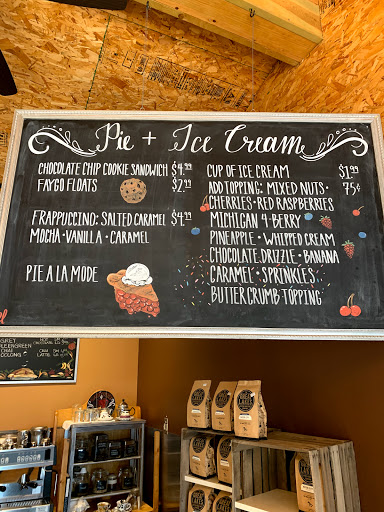 Pie + Ice Cream
CHOCOLATE CHIP COOKIE SANDWICH $4.99
FAYGO FLOATS $2.49
FRAPPUCCINO: SALTED CARAMEL $4.99
MOCHA • VANILLA • CARAMEL
PIE A LA MODE
CUP OF ICE CREAM $1.99
ADD TOPPING: MIXED NUTS • 75¢
CHERRIES • RED RASPBERRIES
MICHIGAN 4-BERRY
PINEAPPLE • WHIPPED CREAM
CHOCOLATE DRIZZLE • BANANA
CARAMEL • SPRINKLES
BUTTER CRUMB TOPPING
GREY
CHAI
OOLONG
CHAI
LATTE